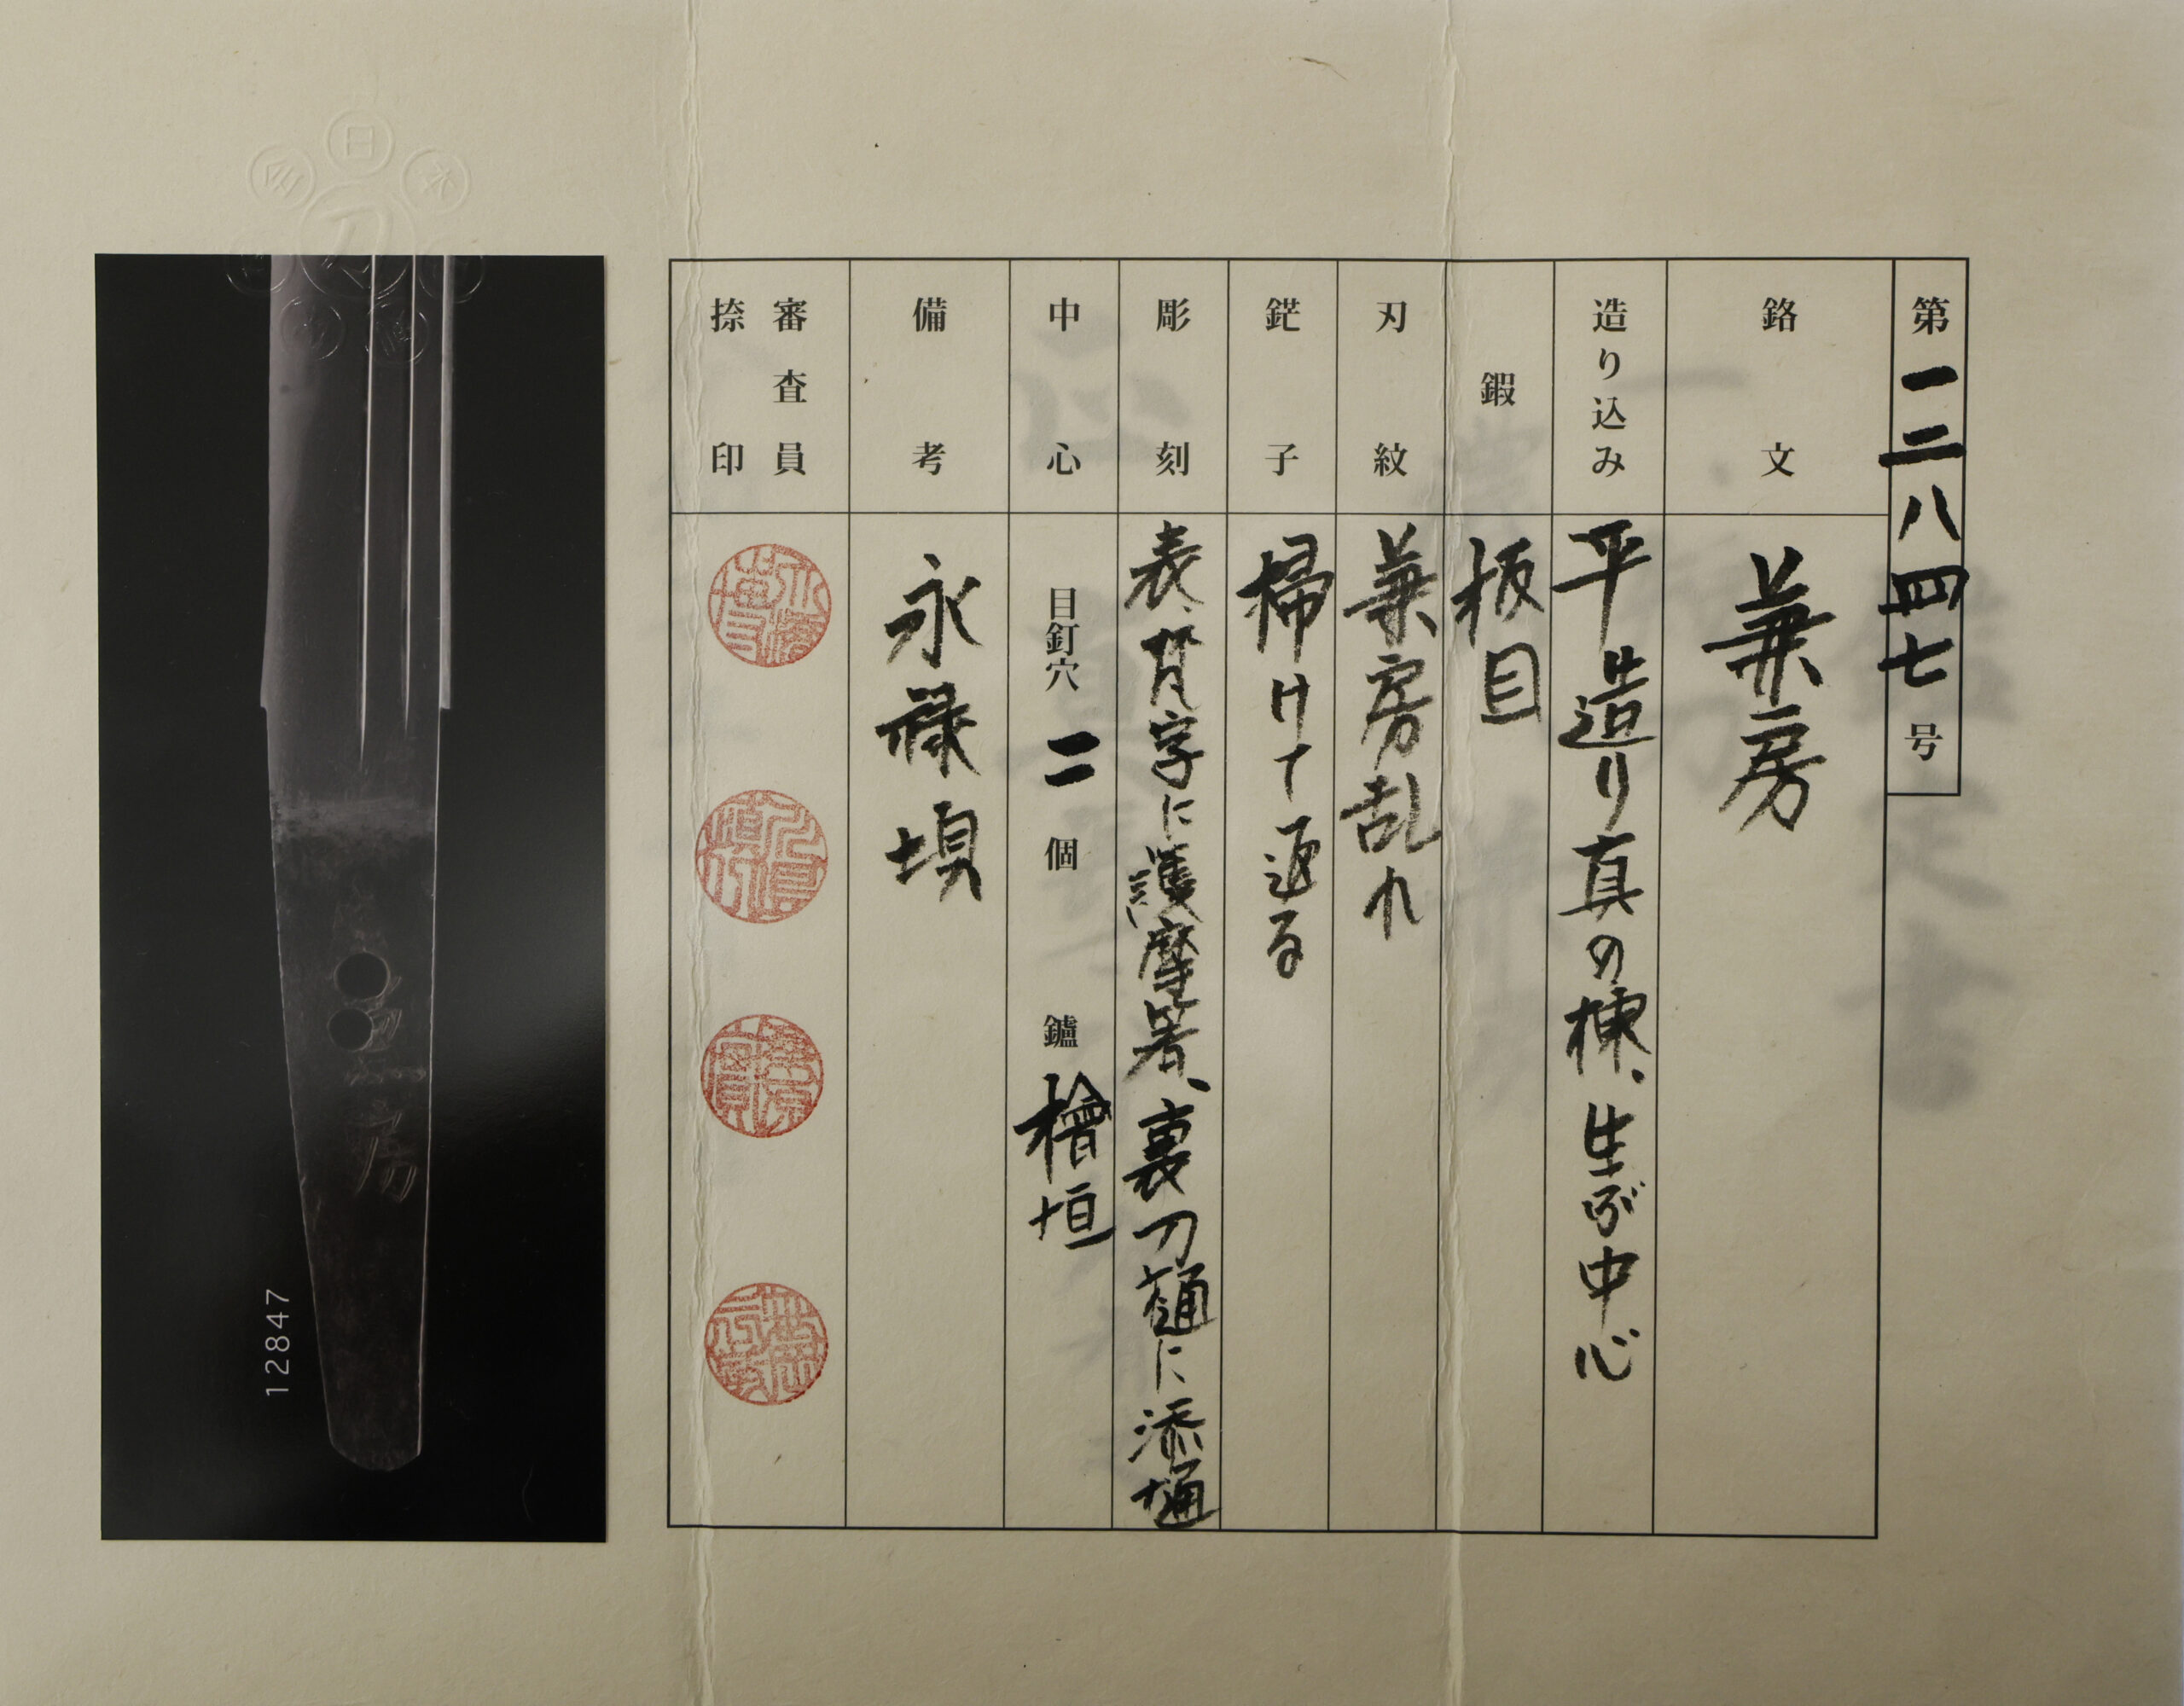 第一二八四七号
銘文 兼房
造り込み 平造り真の棟、生ぶ中心
鍜 板目
刃紋 兼房乱れ
鋩子 掃けて返る
彫刻 表、梵字に護摩箸、裏刀樋に添樋
中心 目釘穴 二 個 鑢 檜垣
備考 永禄頃
審査員
捺印
12847